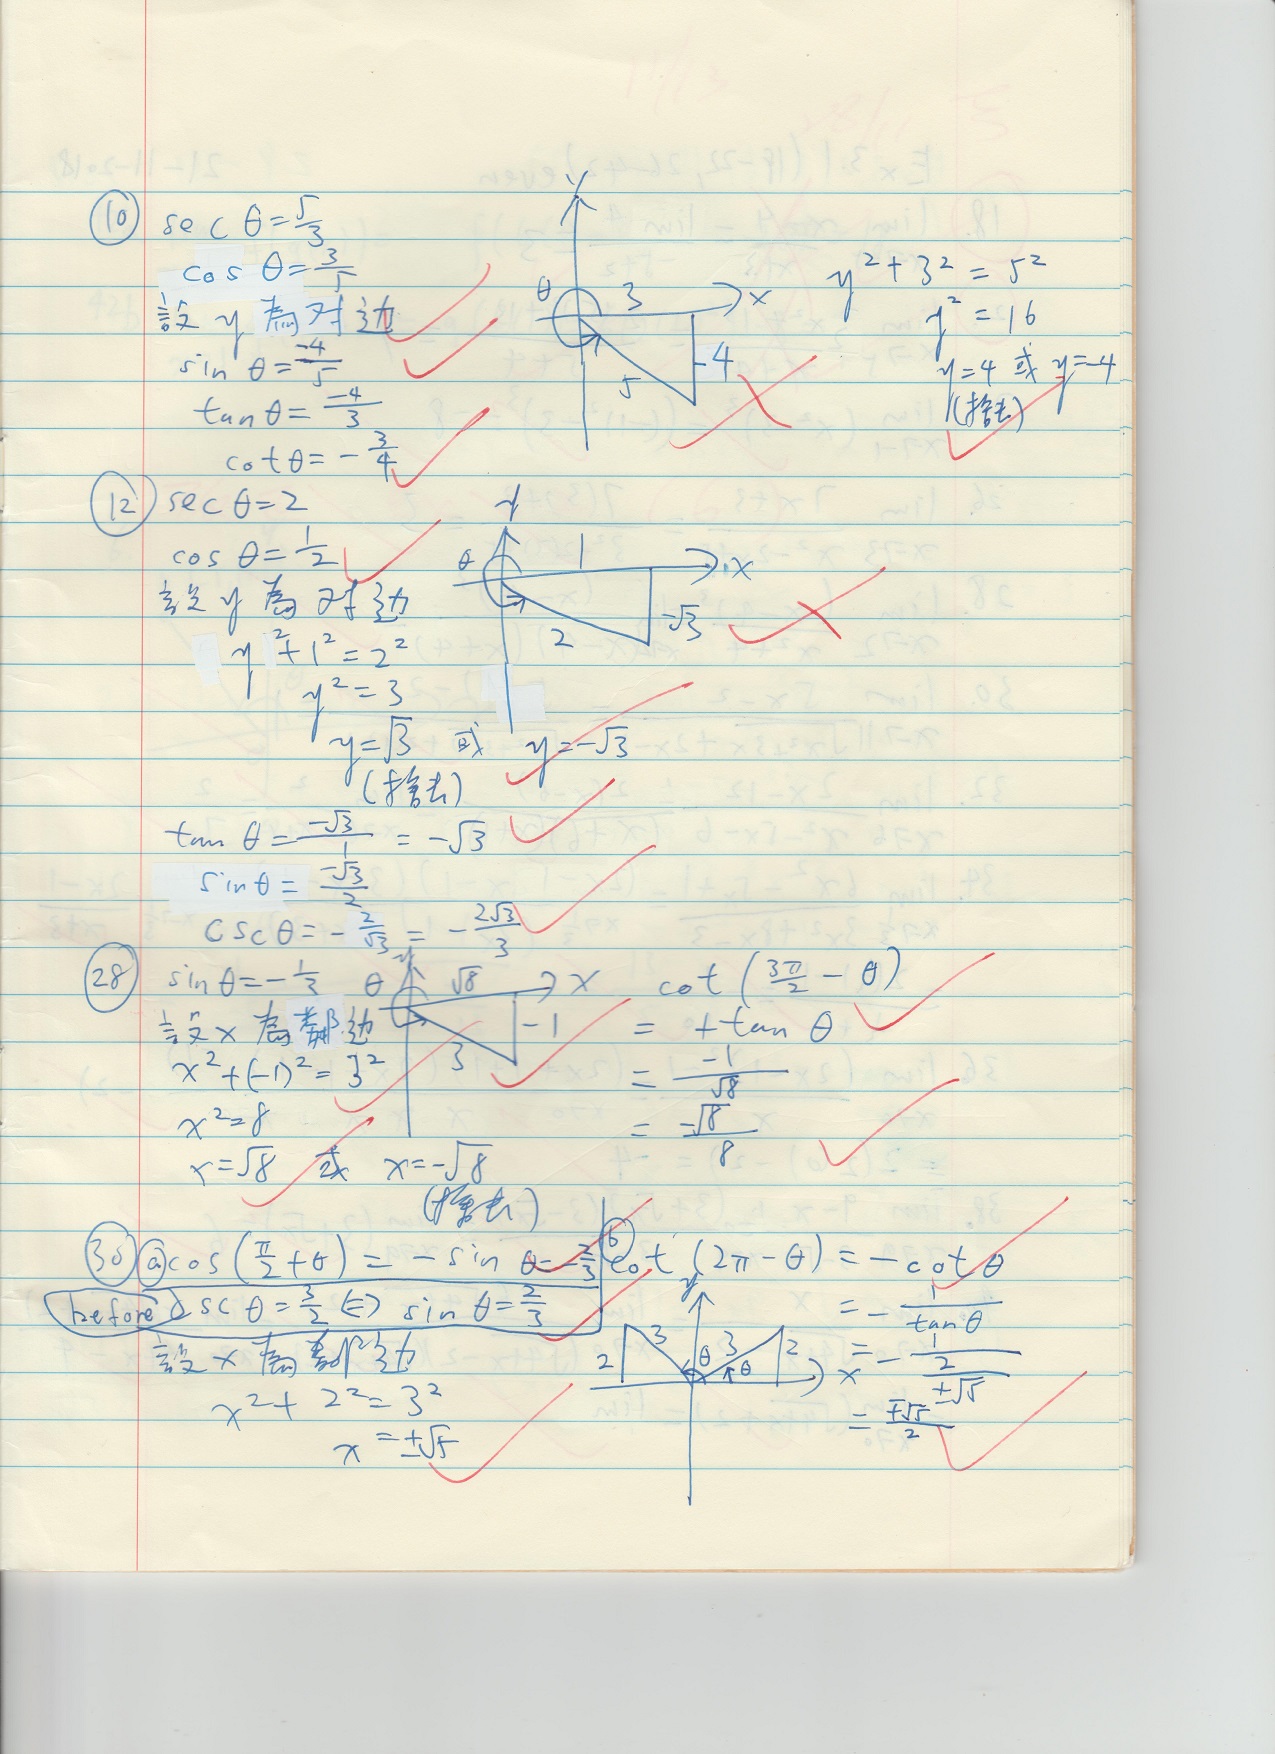 ⑩ sec θ = 5/3
cos θ = 3/5
設 y 為对边
sin θ = -4/5
tan θ = -4/3
cot θ = -3/4
y
θ 3 x
5 -4
y² + 3² = 5²
y² = 16
y = 4 或 y = -4
(捨去)
⑫ sec θ = 2
cos θ = 1/2
設 y 為对边
y² + 1² = 2²
y² = 3
y = √3 或 y = -√3
(捨去)
tan θ = -√3/1 = -√3
sin θ = -√3/2
csc θ = -2/√3 = -2√3/3
y
θ 1 x
2 -√3
㉘ sin θ = -1/3
設 x 為鄰边
x² + (-1)² = 3²
x² = 8
x = √8 或 x = -√8
(捨去)
y
θ √8 x
3 -1
cot (3π/2 - θ)
= + tan θ
= -1/√8
= -√8/8
㉚ ⓐ cos (π/2 + θ) = - sin θ = -2/3
before csc θ = 3/2 ⇔ sin θ = 2/3
設 x 為鄰边
x² + 2² = 3²
x = ±√5
ⓑ cot (2π - θ) = - cot θ
= - 1/tan θ
= - 1/(2/±√5)
= ∓√5/2
y
2 3 θ 3 θ 2 x